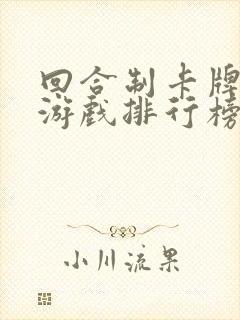 回合制卡牌
游戏排行榜
小川流果